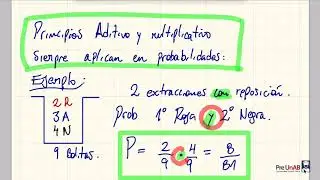 Principios Aditivo y multiplicativo
Siempre aplican en probabilidades:
Ejemplo:
2 R
3 A
4 N
9 Bolitas.
2 extracciones con reposición.
Prob 1° Roja y 2° Negra.
P = 2/9 · 4/9 = 8/81
Pre UnAB